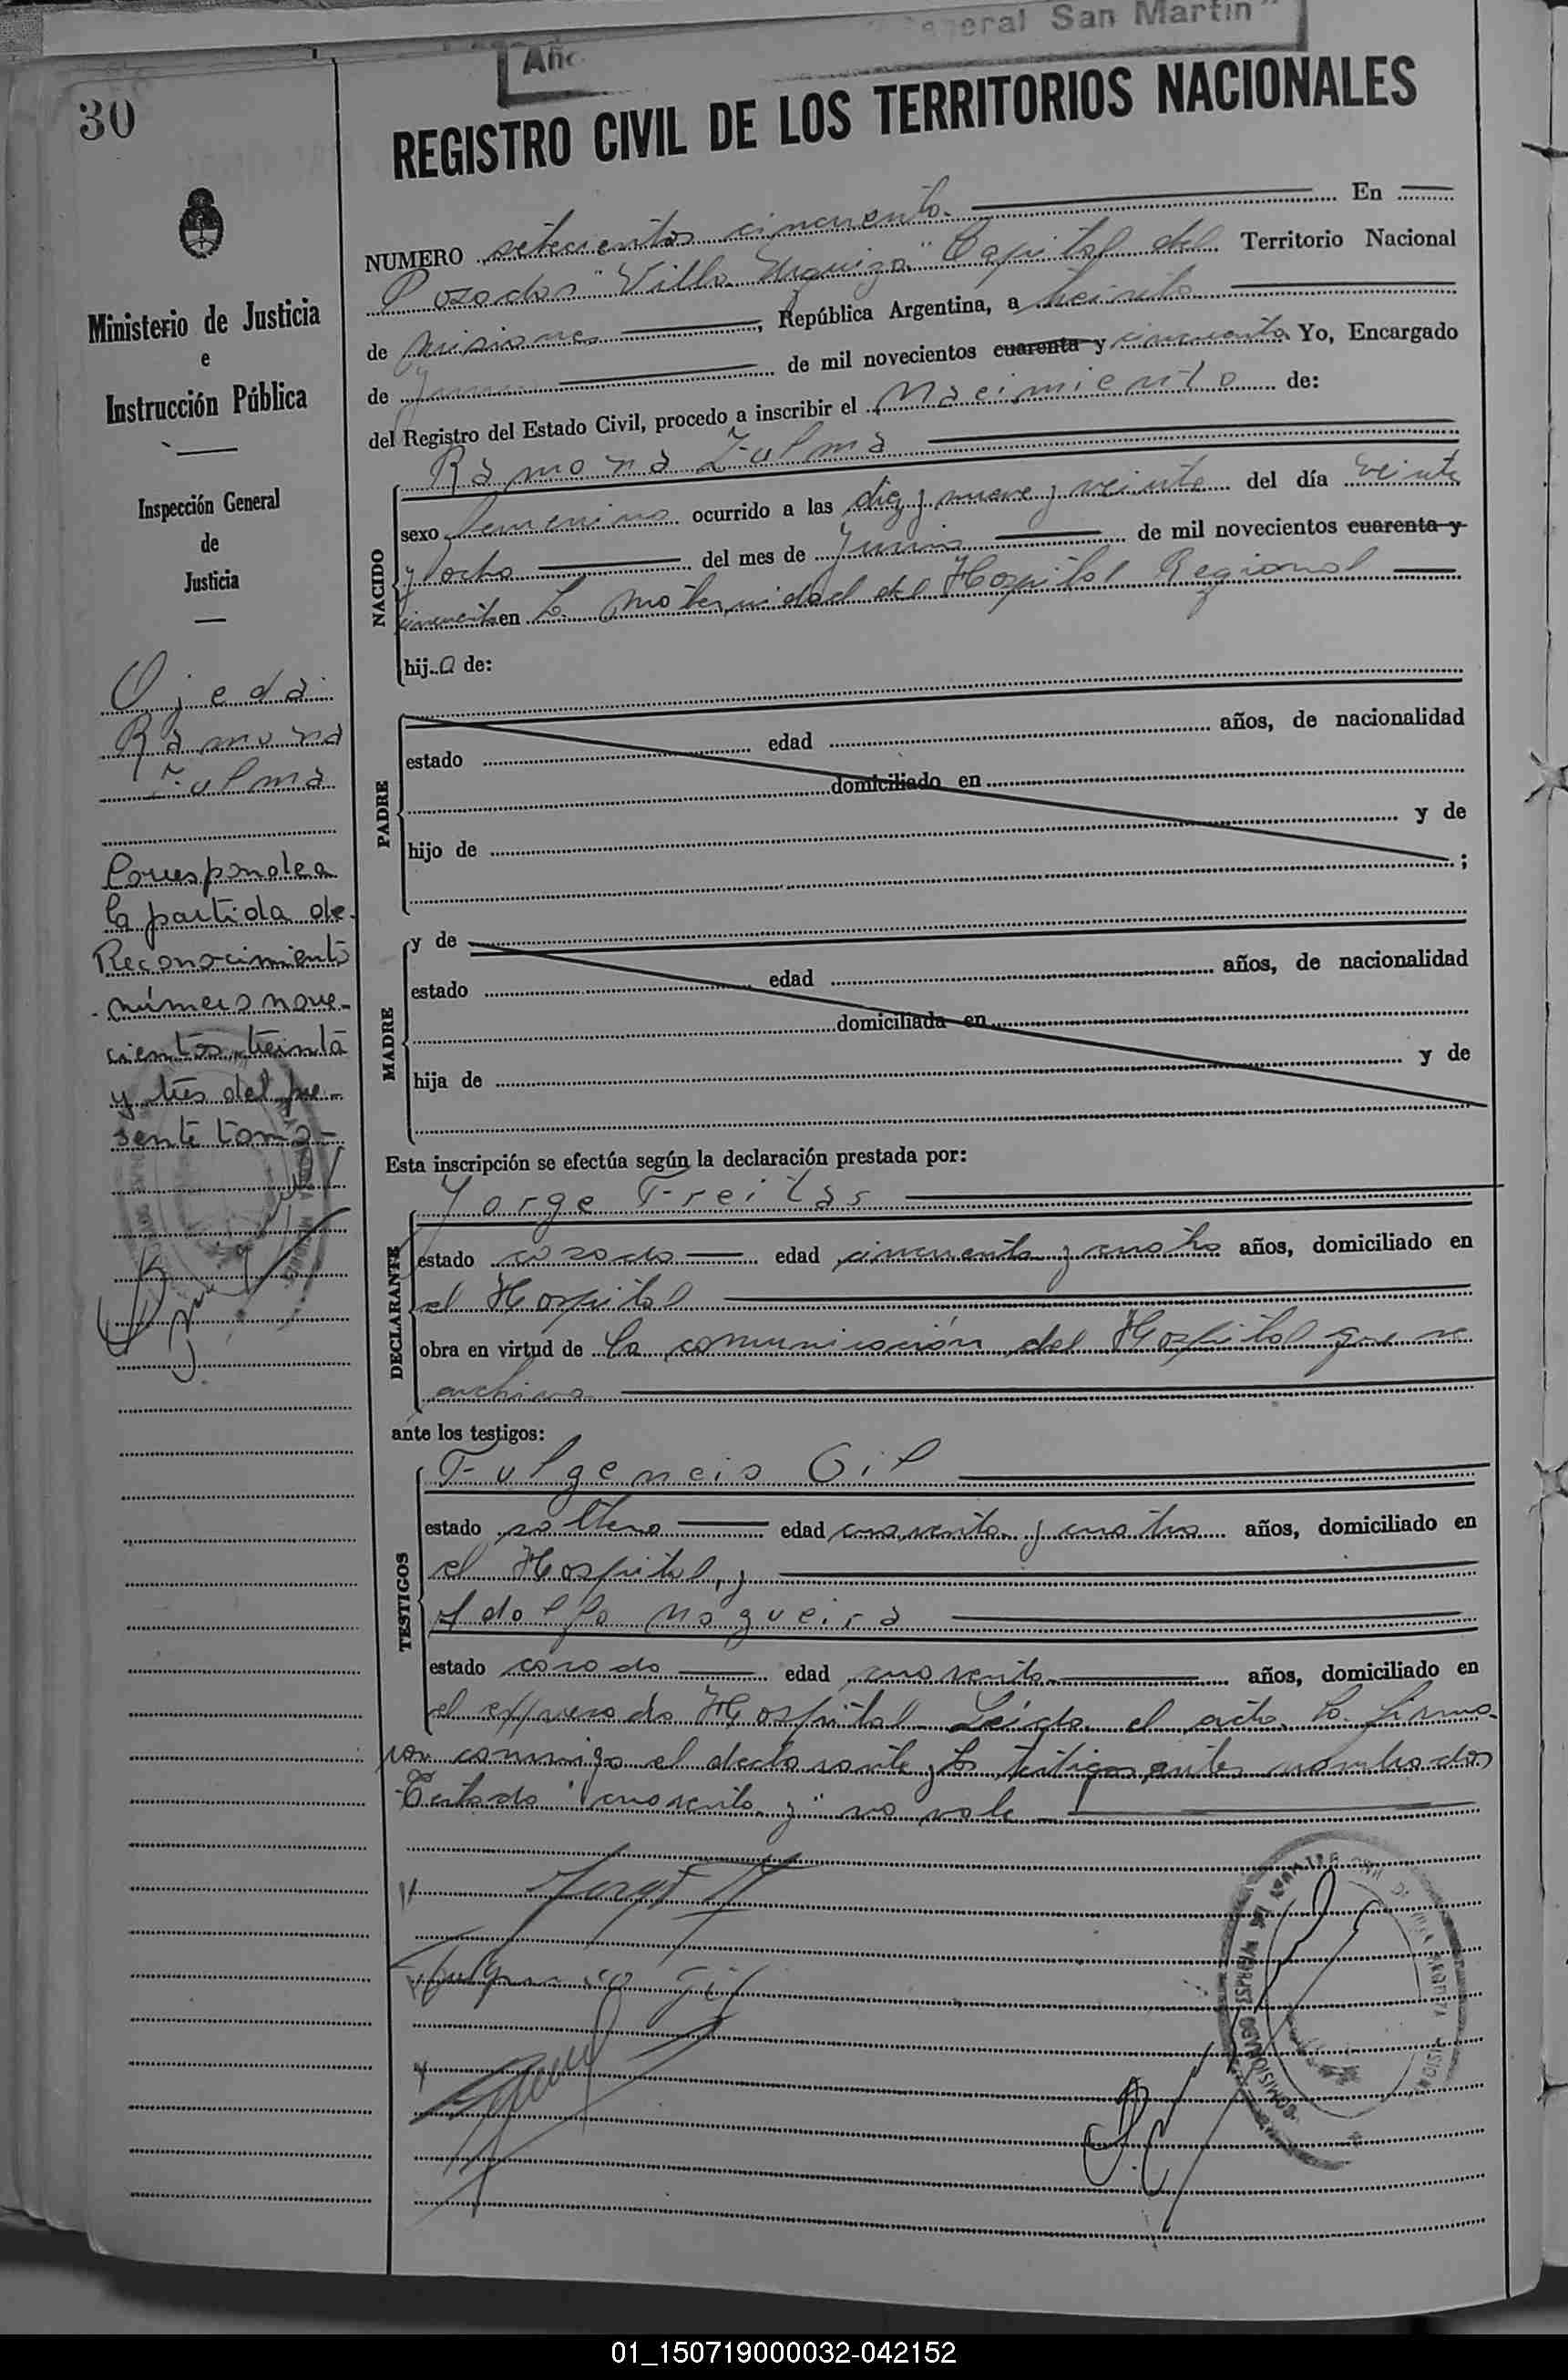 Año
General San Martín"
30
REGISTRO CIVIL DE LOS TERRITORIOS NACIONALES
Ministerio de Justicia
e
Instrucción Pública
Inspección General
de
Justicia
Ojeda
Ramona
Zulma
Corresponde a
la partida de
Reconocimiento
número nove-
cientos treinta
y tres del pre-
sente tomo-
NUMERO setecientos cincuenta. En
Posadas "Villa Urquiza" Capital del Territorio Nacional
de Misiones, República Argentina, a treinta
de Junio de mil novecientos cuarenta y cincuenta Yo, Encargado
del Registro del Estado Civil, procedo a inscribir el Nacimiento de:
NACIDO
Ramona Zulma
sexo femenino ocurrido a las diez y nueve y veinte del día veinte
y ocho del mes de Junio de mil novecientos cuarenta y
cincuenta en la maternidad del Hospital Regional
hija de:
PADRE
estado edad años, de nacionalidad
domiciliado en
hijo de y de
;
MADRE
y de
estado edad años, de nacionalidad
domiciliada en
hija de y de
Esta inscripción se efectúa según la declaración prestada por:
DECLARANTE
Jorge Freitas
estado casado edad cincuenta y cuatro años, domiciliado en
el Hospital
obra en virtud de la comunicación del Hospital que se
archiva
ante los testigos:
TESTIGOS
Fulgencio Gil
estado soltero edad cuarenta y cuatro años, domiciliado en
el Hospital, y
Adolfo Nogueira
estado casado edad cuarenta años, domiciliado en
el expresado Hospital. Leída el acta la firma-
ron conmigo el declarante y los testigos antes nombrados
Testado "cuarenta y" no vale
Fulgencio Gil
01_150719000032-042152